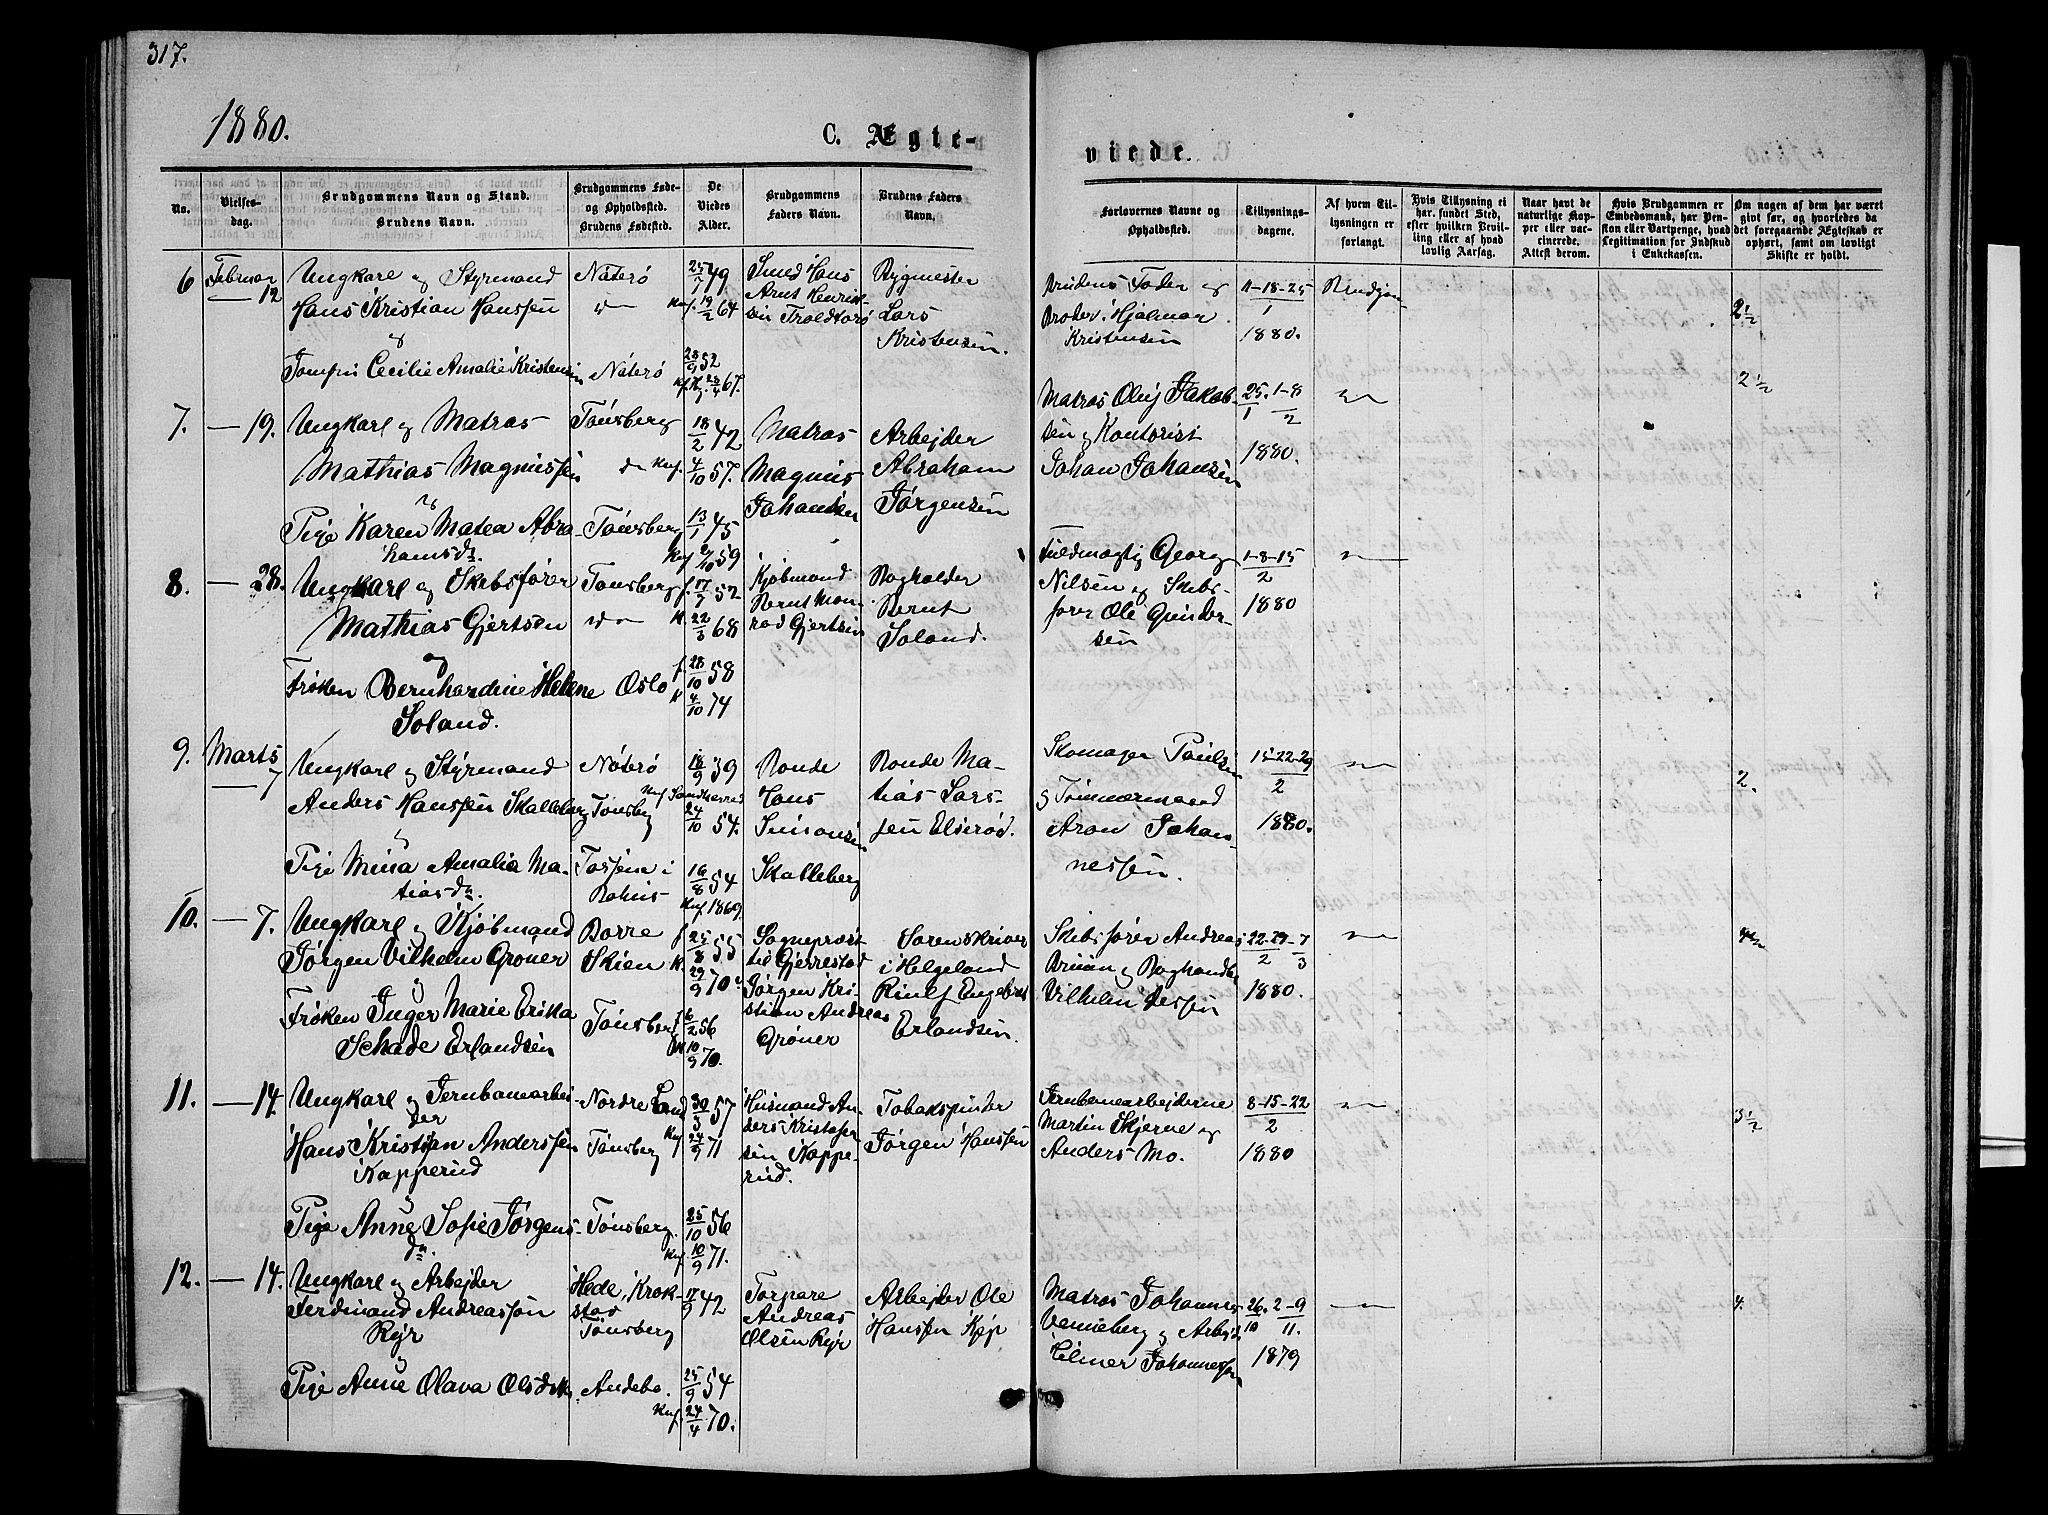 317.
1880.
C. Ægte-
viede.
No.
Vielses-
dag.
Brudgommens Navn og Stand.
Brudens Navn.
Brudgommens Føde-
og Opholdssted.
Brudens Fødested.
De
Viedes
Alder.
Brudgommens
Faders Navn.
Brudens Faders
Navn.
Forlovernes Navne og
Opholdssted.
Tillysnings-
dagene.
Af hvem Til-
lysningen er
forlangt.
Hvis Tillysning ei
har fundet Sted,
efter hvilken Bevil-
ling eller af hvad
lovlig Aarsag.
Naar havt de
naturlige Kop-
per eller vac-
cinerede.
Attest derom.
Hvis Brudgommen er
Embedsmand, har Pen-
sion eller Vartpenge, hvad
Legitimation for Indskud
i Enkekassen.
Om nogen af dem har været
givt før, og hvorledes da
det foregaaende Ægteskab er
ophørt, samt om lovligt
Skifte er holdt.
6
Februar
12
Ungkarl og Styrmand
Hans Kristian Hanssen
og
Cecilie Amalie Kristensen
Nøterø
Nøterø
25/1 49
Knf. 19/2 64
28/9 52
67.
Smed Hans
Arnt Henrik-
sen
Lars
Kristensen.
Brudens Fader og
Broder Hjalmar
Kristensen
11-18-25
1
1880.
2 1/2
7.
— 19.
Ungkarl og Matros
Mathias Magnussen
Pige Karen Matea Abra-
hamsdr.
Tønsberg
Tønsberg
18/2 42
Knf. 4/10 57.
13/1 45
Knf. 2/10 59
Matros
Magnus
Johansen
Arbejder
Abraham
Jørgensen
Matros Oluf Jakob-
sen og Kontorist
Johan Johansen
25. 1-8
1 2
1880.
2 1/2
8.
— 28.
Ungkarl og Skibsfører
Mathias Gjertsen
og
Frøken Bernhardine Helene
Soland.
Tønsberg
Oslo
f. 17/7 52
K. 22/3 68
f. 28/10 58
K. 4/10 74
Kjøbmand
Bernt Mon-
rad Gjertsen
Bogholder
Bernt
Soland.
Fuldmægtig Georg
Nilsen og Skibs-
fører Ole Gunder-
sen
1-8-15
2
1880
9.
Marts
— 7
Ungkarl og Styrmand
Anders Hanssen Skalleberg
og
Pige Mina Amalia Ma-
tiasdr.
Nøterø
Tønsberg
i
18/9 39
Knf. Sandeherred
24/10 54.
16/8 54
Knf. 1869.
Bonde
Hans
Simonsen
Skalleberg
Bonde Ma-
tias Lars-
sen Elserød.
Skomager Paulsen
og Tømmermand
Aron Johan-
nessen.
15-22-29
2
1880.
2.
10.
— 7.
Ungkarl og Kjøbmand
Jørgen Vilhelm Grøner
og
Frøken Inger Marie Erika
Schade Erlandsen
Borre
Skien
Tønsberg
f. 25/8 55
K. 29/9 70.
f. 6/2 56
K. 10/9 70.
Sognepræst
til Gjerrestad
Jørgen Kri-
stian Andreas
Grøner
Sorenskriver
i Helgeland
Rinlf Engebret
Erlandsen.
Skibsfører Andreas
Bruun og Boghandler
Vilhelm
22-29-7
2 3
1880.
11.
— 14.
Ungkarl og Jernbanearbei-
der
Hans Kristian Anderssen
Kapperud
og
Pige Anne Sofie Jørgens-
dr.
Nordre Land
Tønsberg
Tønsberg.
30/3 57
Knf. 24/9 71
25/10 56
Knf. 10/9 71.
Husmand An-
ders Kristofer-
sen Kappe-
rud.
Tobakspinder
Jørgen Hanssen
Jernbanearbejderne
Martin Skjerve og
Anders Mo.
8-15-22
2
1880
3 1/2
12.
— 14.
Ungkarl og Arbejder
Ferdinand Andreassøn
Ryr
og
Pige Anne Olava
Hede, Krok-
stad
Tønsberg
Andebo.
17/9 42
25/9 54
Knf. 24/4 70.
Torpare
Andreas
Olsen Ryr
Arbejder Ole
Hanssen
Matros Johannes
Venneberg og Arbejd.
Hilmer Johannessen
26. 2-9
10 11.
1879
4.